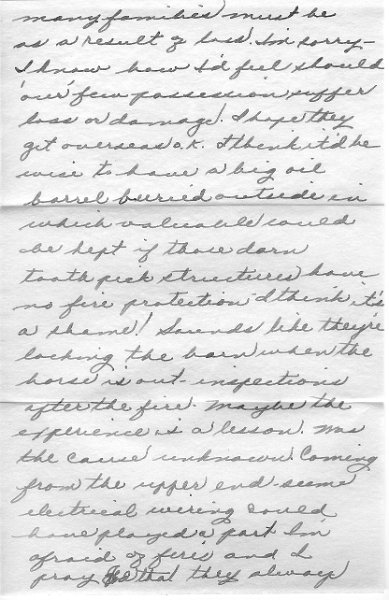 many families must be
as a result of loss. I'm sorry—
I know how I'd feel should
our few possession suffer
loss or damage. I hope they
get overseas o.k. I think it'd be
wise to have a big oil
barrel buried outside in
which valuable could
be kept if those darn
tooth pick structures have
no fire protection I think it's
a shame! Sounds like they're
locking the barn when the
horse is out - inspections
after the fire. Maybe the
experience is a lesson. Was
the cause unknown? Coming
from the upper end - seems
electrical wiring could
have played a part I'm
afraid of fires and I
pray that they always